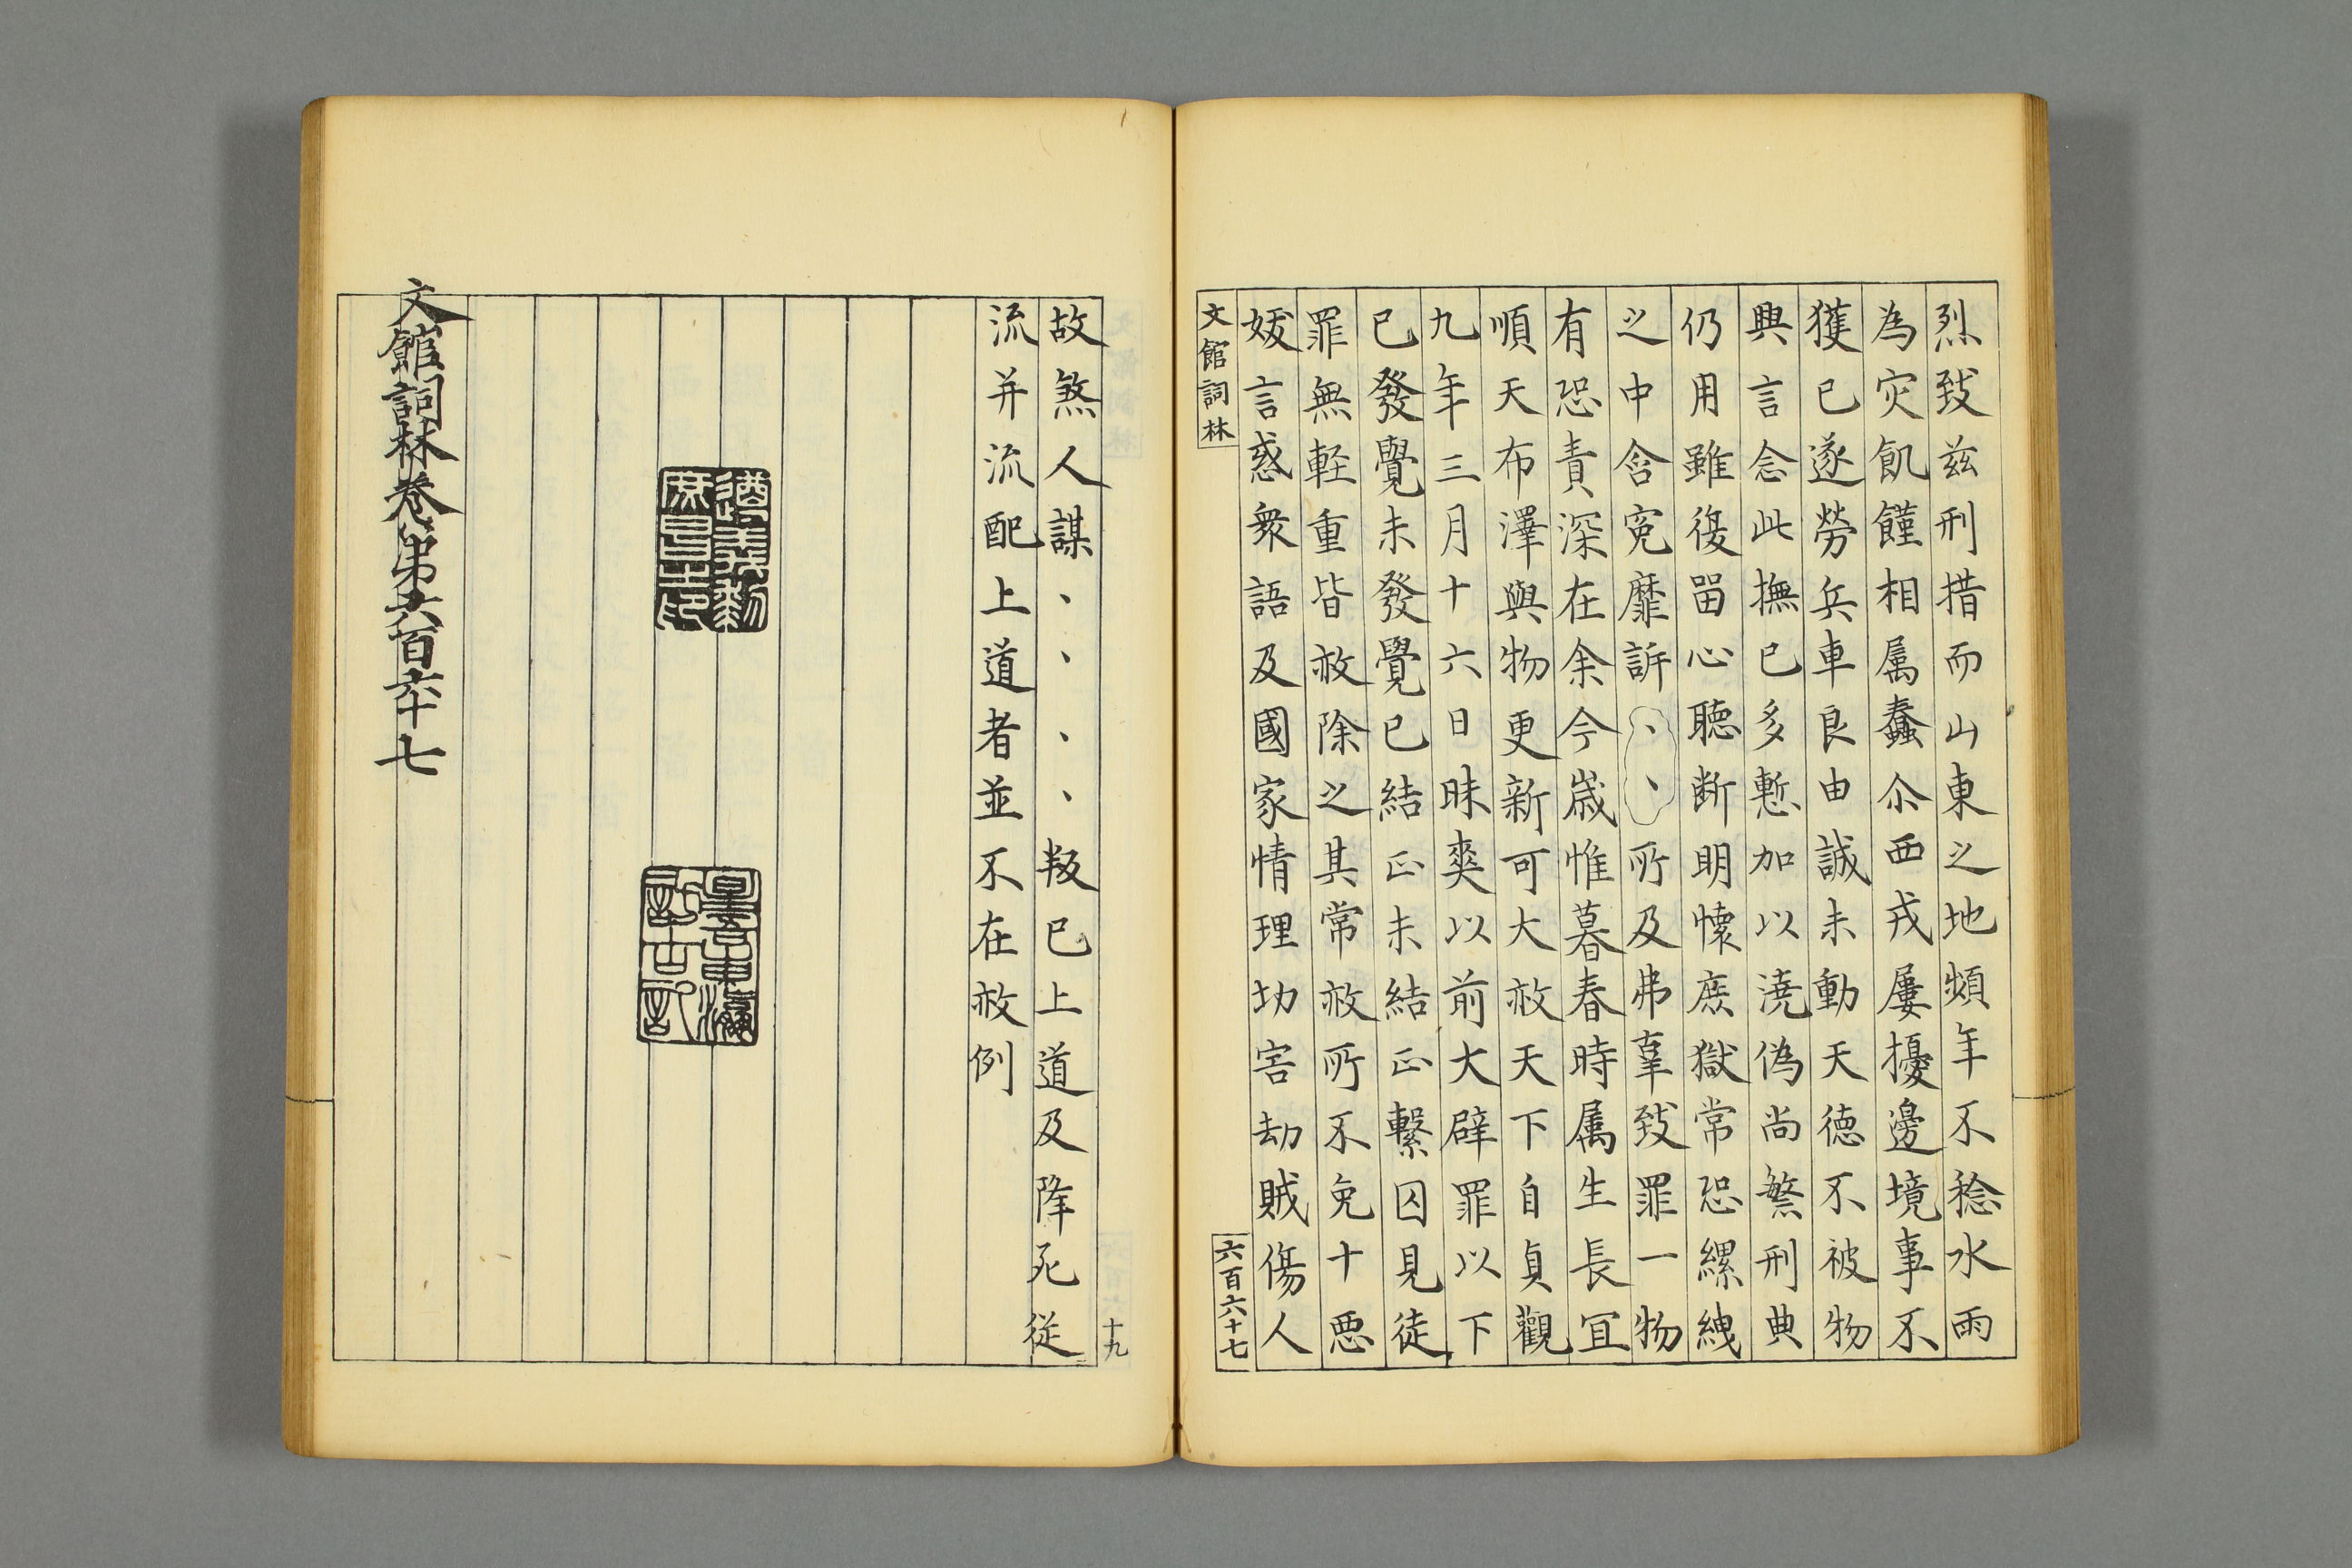 烈致兹刑措而山東之地頻年不稔水雨
為灾飢饉相属蠢尒西戎屢擾邊境事不
獲已遂勞兵車良由誠未動天徳不被物
興言念此撫已多慙加以澆偽尚繁刑典
仍用雖復留心聴断明懐庶獄常恐縲絏
之中含寃靡訴、、所及弗辜致罪一物
有恐責深在余今嵗惟暮春時属生長冝
順天布澤與物更新可大赦天下自貞觀
九年三月十六日昧爽以前大辟罪以下
已發覺未發覺已結正未結正繫囚見徒
罪無軽重皆赦除之其常赦所不免十悪
妖言惑衆語及國家情理切害劫賊傷人
文館詞林
六百六十七
故煞人謀、、、、叛已上道及降死従
流并流配上道者並不在赦例
十九
遵王考勘
庶昌之印
星吾東瀛
訪古記
文館詞林卷第六百六十七